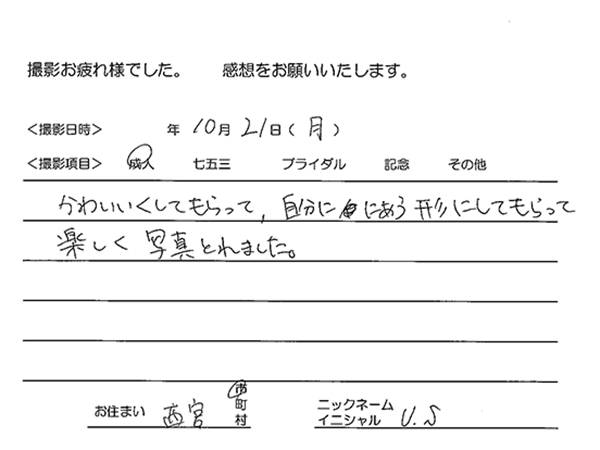 撮影お疲れ様でした。 感想をお願いいたします。
<撮影日時> 年 10月 21日(月)
<撮影項目> 成人 七五三 ブライダル 記念 その他
かわいいくしてもらって、自分ににあう形にしてもらって
楽しく 写真とれました。
お住まい 西宮 市町村 ニックネーム イニシャル U.S